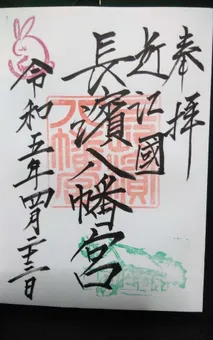 奉拝
近江國
長濱八幡宮
令和五年四月二十三日